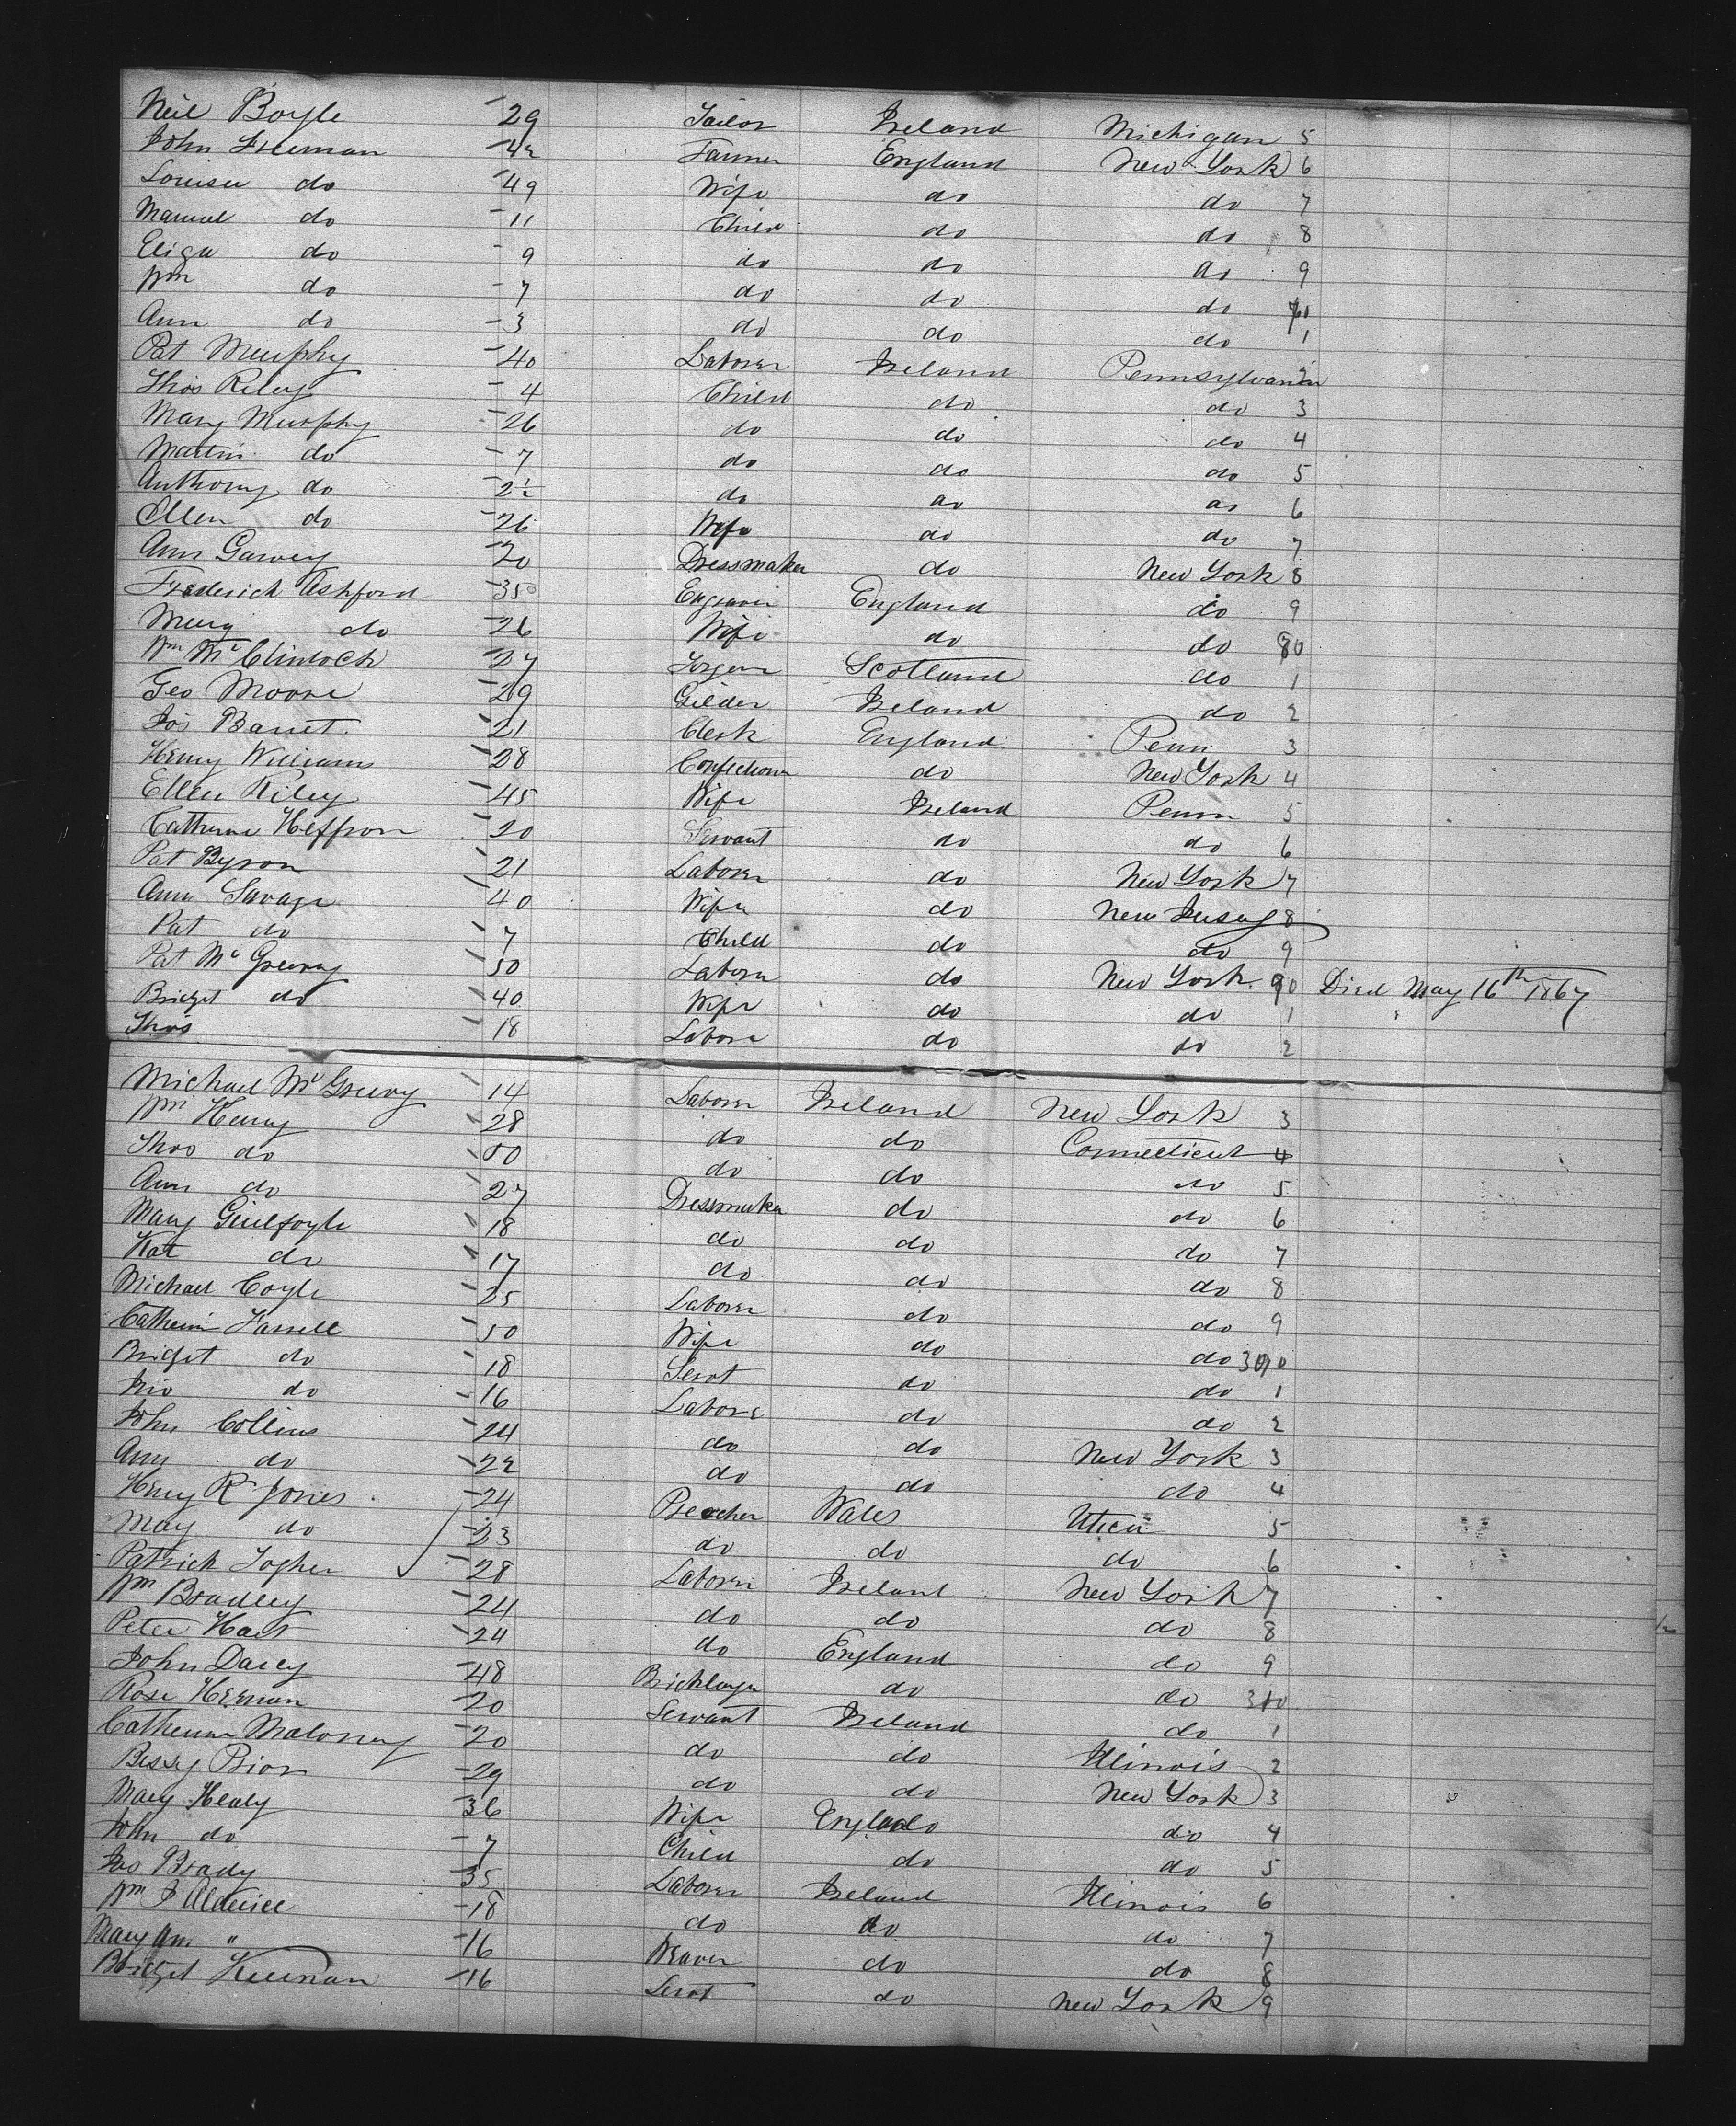 Neil Boyle 29 Tailor Ireland Michigan 5
John Freeman 42 Farmer England New York 6
Louisa do 49 Wife do do 7
Manuel do 11 Child do do 8
Eliza do 9 do do do 9
Wm do 7 do do do 70
Ann do 3 do do do 1
Pat Murphy 40 Laborer Ireland Pennsylvania 2
Thos Riley 4 Child do do 3
Mary Murphy 26 do do do 4
Martin do 7 do do do 5
Anthony do 2½ do do do 6
Ellen do 26 Wife do do 7
Ann Garvey 20 Dressmaker do New York 8
Frederick Ashford 35 Engraver England do 9
Mary do 26 Wife do do 80
Wm McClintock 27 Scotland do 1
Geo Moore 29 Gilder Ireland do 2
Jos Barret 21 Clerk England Penn 3
Henry Williams 28 Confectioner do New York 4
Ellen Riley 45 Wife Ireland Penn 5
Catherine Heffron 20 Servant do do 6
Pat Byron 21 Laborer do New York 7
Ann Savage 40 Wife do New Jersey 8
Pat do 7 Child do do 9
Pat McGreevy 50 Laborer do New York 90 Died May 16th 1867
Bridget do 40 Wife do do 1
Thos 18 Labore do do 2
Michael McGreevy 14 Laborer Ireland New York 3
Wm Henry 28 do do Connecticut 4
Thos do do do do 5
Ann do 27 Dressmaker do do 6
Mary Guilfoyle 18 do do do 7
Kat do 17 do do do 8
Michael Coyle 25 Laborer do do 9
Catherine Farrell 50 Wife do do 300
Bridget do 18 Servt do do 1
Jno do 16 Labore do do 2
John Collins 24 do do New York 3
Ann do 22 do do do 4
Henry R Jones 24 Preacher Wales Utica 5
May do 23 do do do 6
Patrick Togher 28 Laborer Ireland New York 7
Wm Bradley 24 do do do 8
Peter Hart 24 do England do 9
John Darcy 48 Bricklayer do do 310
Rose Heernan 20 Servant Ireland do 1
Catherine Maloney 20 do do Illinois 2
Bessy Prior 29 do do New York 3
Mary Healy 36 Wife England do 4
John do 7 Child do do 5
Jas Brady 35 Laborer Ireland Illinois 6
Wm J Alderice 18 do do do 7
Mary Ann " 16 Weaver do do 8
Bridget Keenan 16 Servt do New York 9